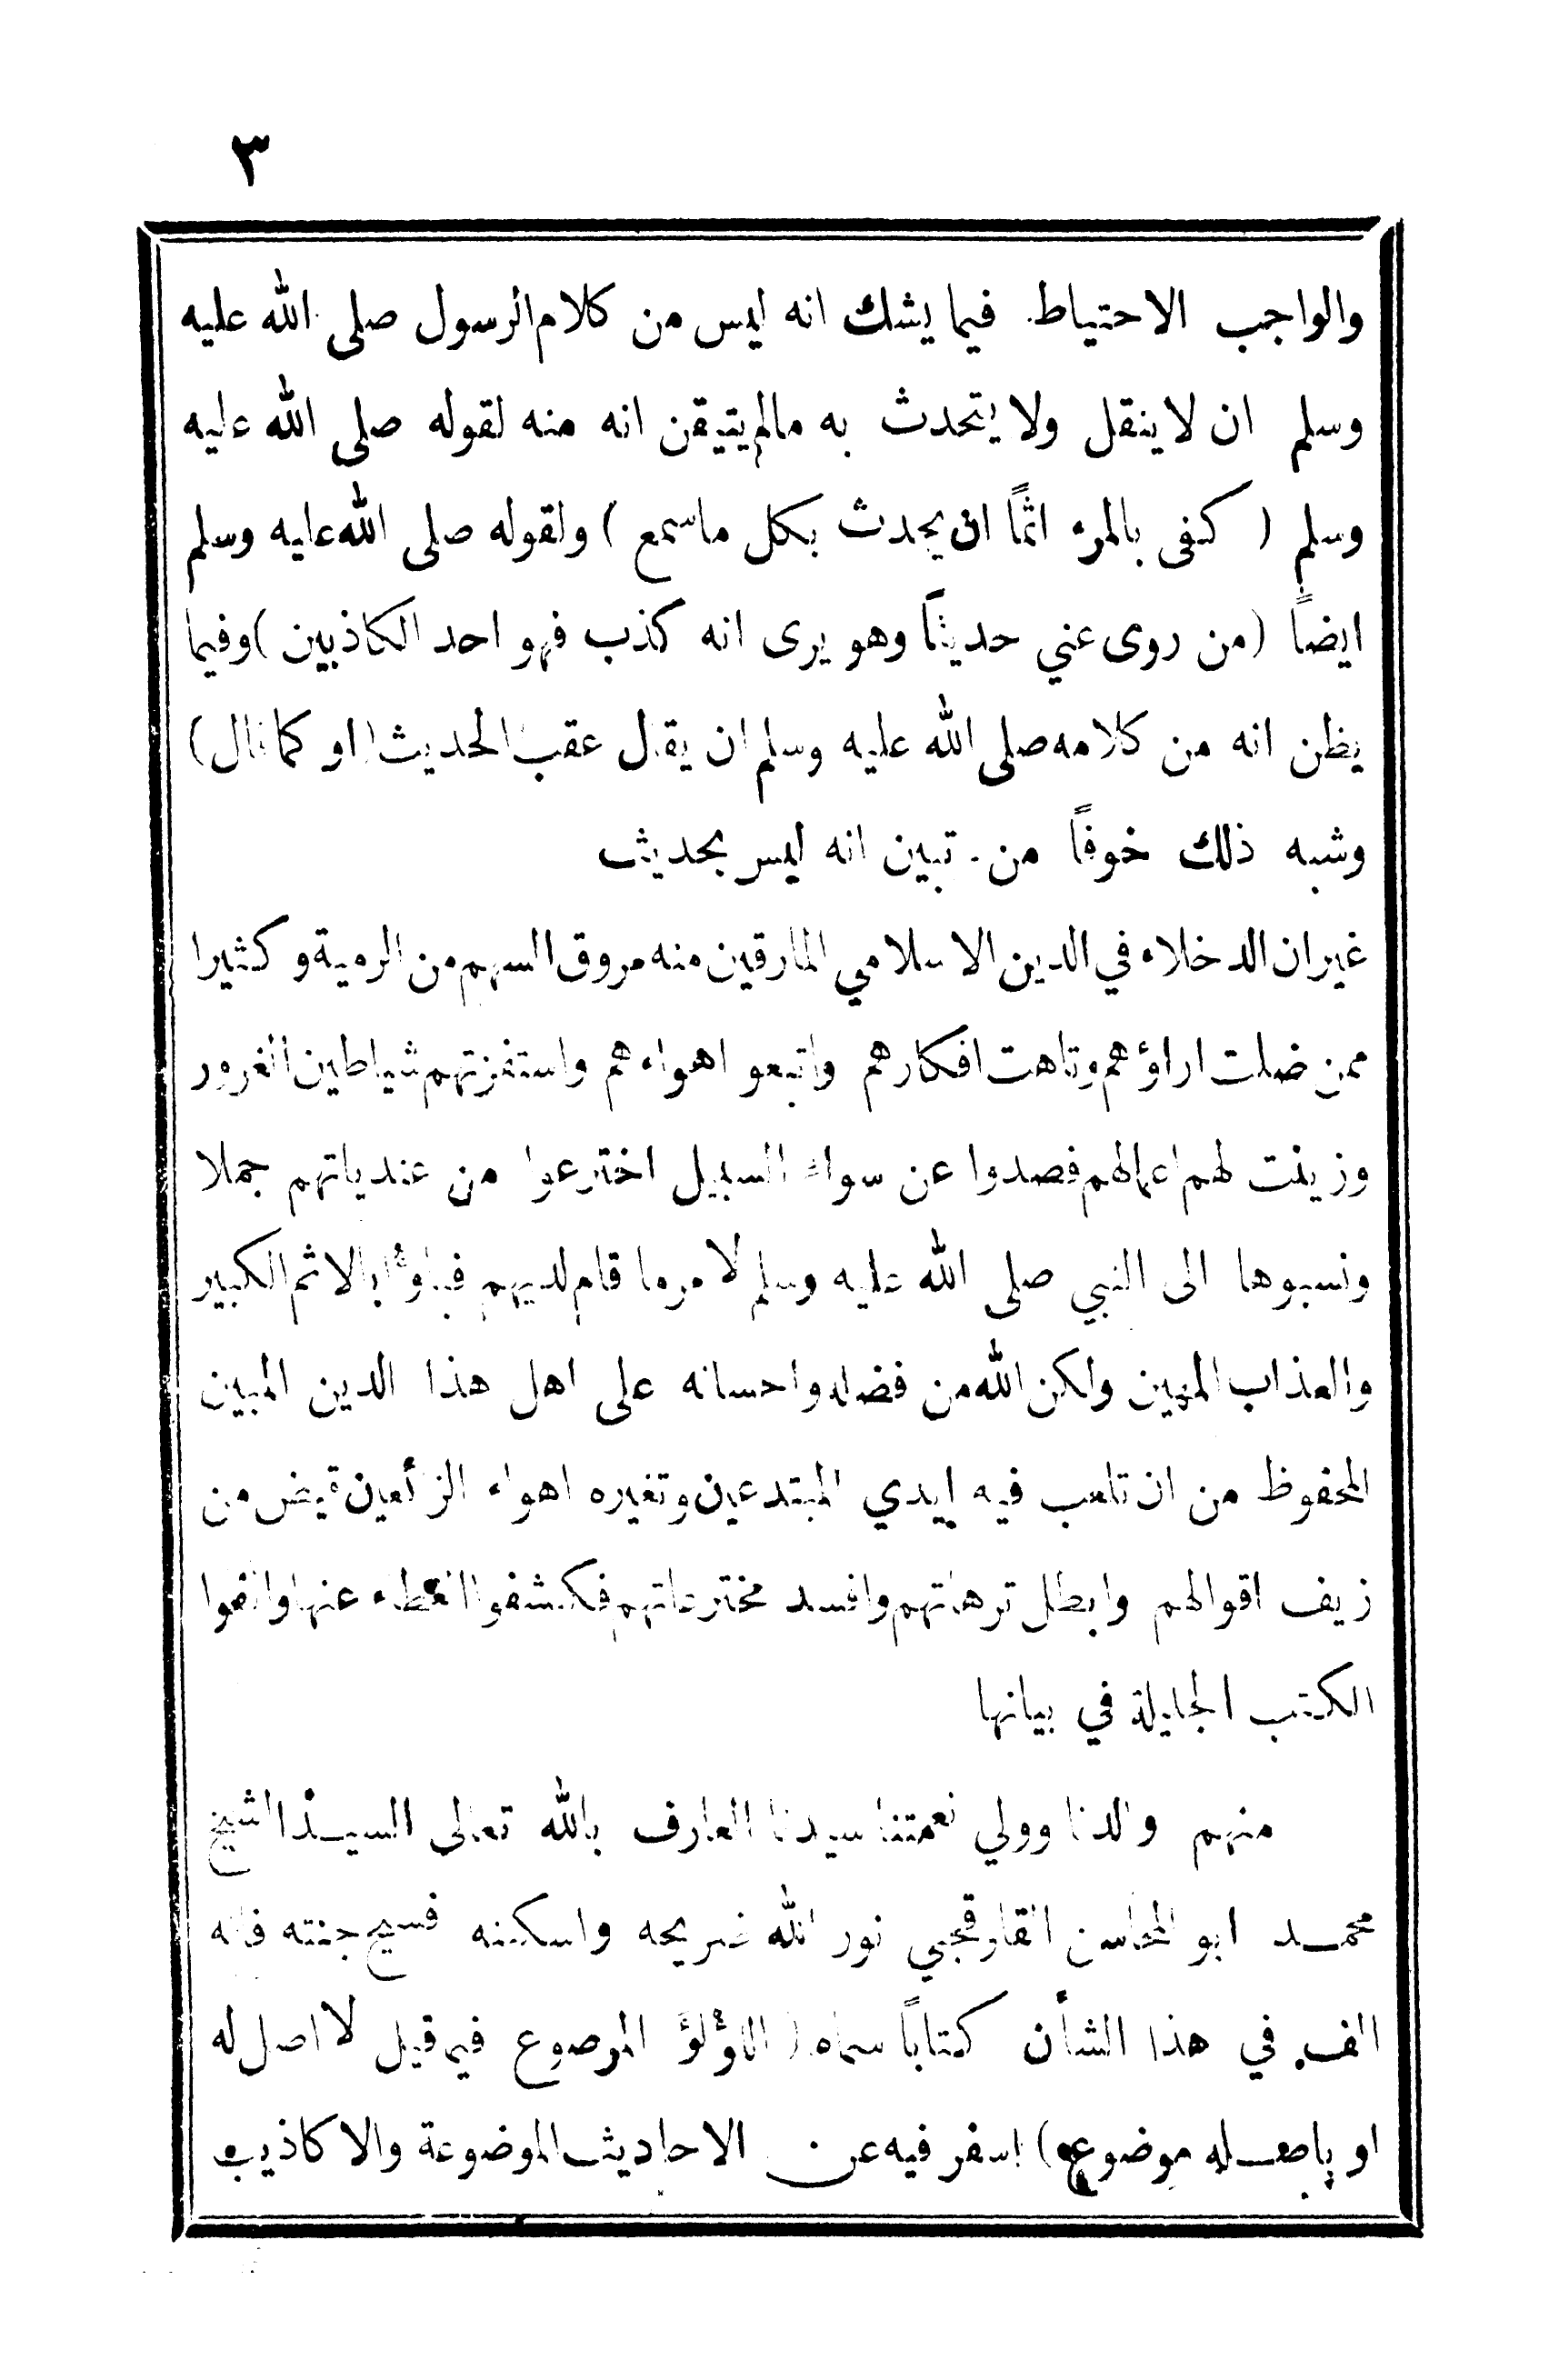 ٣
والواجب الاحتياط فيما يشك انه ليس من كلام الرسول صلى الله عليه
وسلم ان لا ينقل ولا يتحدث به مالم يتيقن انه منه لقوله صلى الله عليه
وسلم ( كفى بالمرء اثمًا ان يحدث بكل ماسمع ) ولقوله صلى الله عليه وسلم
ايضاً (من روى عني حديثاً وهو يرى انه كذب فهو احد الكاذبين) وفيما
يظن انه من كلامه صلى الله عليه وسلم ان يقول عقب الحديث (او كما قال)
وشبه ذلك خوفاً من تبين انه ليس بحديث
غير ان الدخلاء في الدين الاسلامي المارقين منه مروق السهم من الرمية وكثيرا
ممن ضلت اراؤهم وتاهت افكارهم واتبعو اهواءهم واستفزتهم شياطين الغرور
وزينت لهم اعمالهم فصدوا عن سواء السبيل اخترعوا من عندياتهم جملا
ونسبوها الى النبي صلى الله عليه وسلم لامر ما قام لديهم فباؤا بالاثم الكبير
والعذاب المهين ولكن الله من فضله واحسانه على اهل هذا الدين المبين
المحفوظ من ان تلعب فيه ايدي المبتدعين وتغيره اهواء الزائغين قيض من
زيف اقوالهم وابطل ترهاتهم وافسد مخترعاتهم فكشفوا الغطاء عنها والفوا
الكتب الجليلة في بيانها
منهم والدنا وولي نعمتنا سيدنا العارف بالله تعالى السيد الشيخ
محمد ابو المحاسن القاوقجي نور الله ضريحه واسكنه فسيح جنته فانه
الف في هذا الشأن كتاباً سماه ( اللؤلؤ المرصوع فيم قيل لا اصل له
او باصله موضوع) اسفر فيه عن الاحاديث الموضوعة والاكاذيب